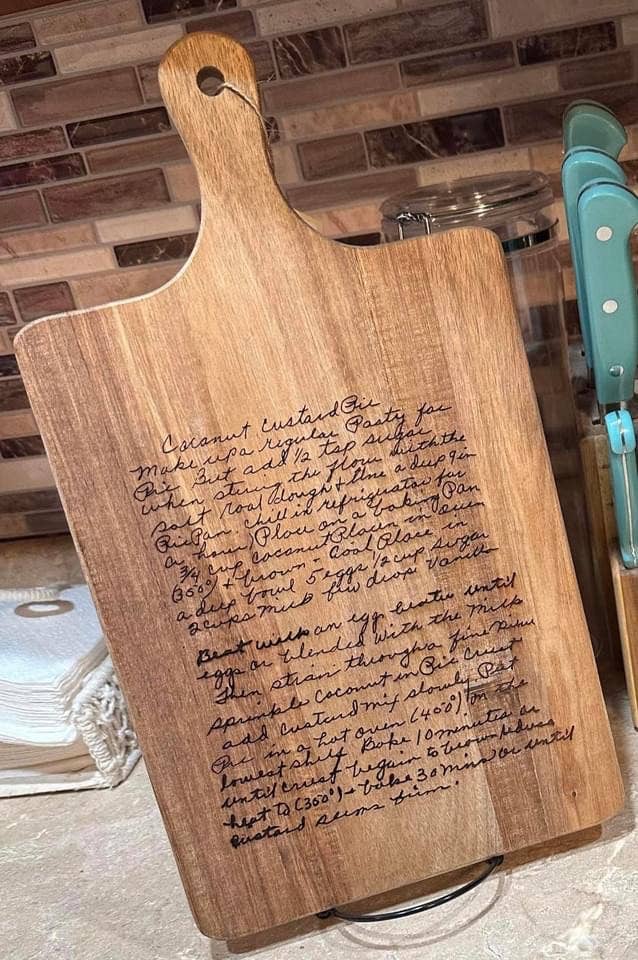 Coconut Custard Pie
Make up a regular Pasty for
Pie But add 1/2 tsp sugar
when stiring the flour with the
salt roal dough & line a deep 9 in
Pie Pan chill in refrigrator for
an hour Place on a baking Pan
3/4 cup coconut Place in oven
(350°) & brown - Cool, Place in
a deep bowl 5 eggs 1/2 cup sugar
2 cups milk few drops Vanilla
Beat with an egg beater until
eggs or blended with the milk
Then strain through a fine
sprinkle coconut in Pie crust
add custard mix slowly Put
Pie in a hot oven (400°) on the
lowest shelf Bake 10 minutes or
until crust began to brown Reduce
heat to (350°) & bake 30 mins or until
custard seems firm.